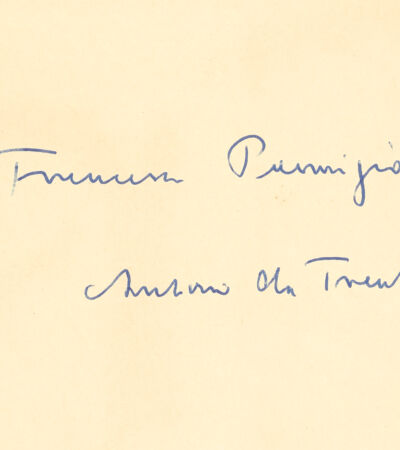 Francesco Parmigia
Antonio da Trent